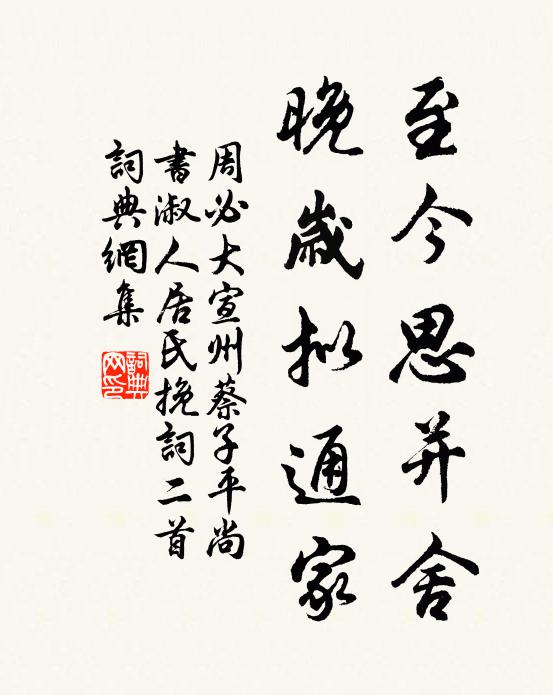 至今思并舍
晚歲拟通家
周必大宣州蔡子平尚
書淑人居氏挽詞二首
詞典網集
詞典
网印